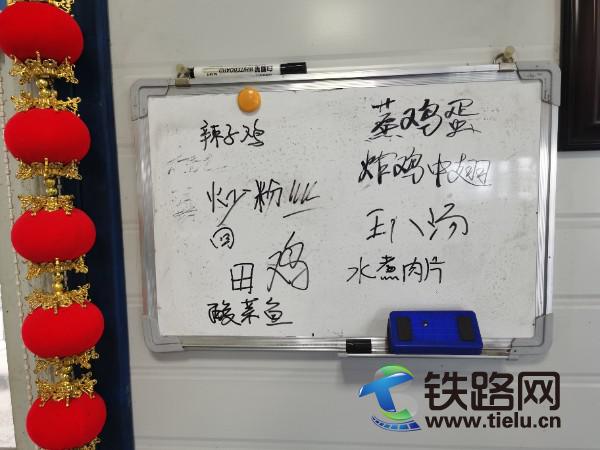 白板笔 WHITEBOARD
辣子鸡
炒粉
回
田鸡
酸菜鱼
蒸鸡蛋
炸鸡中翅
王八汤
水煮肉片
铁路网
www.tielu.cn